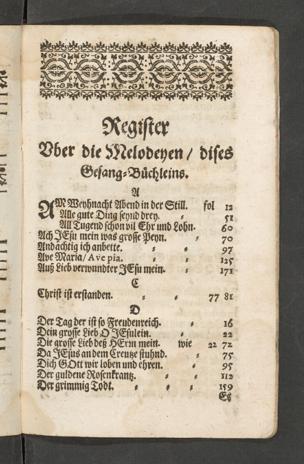 Register
Vber die Melodeyen / dises
Gesang-Büchleins.
A
AM Weyhnacht Abend in der Still. fol 12
Alle gute Ding seynd drey. 51
All Tugend schon vil Ehr und Lohn. 60
Ach JEsu mein was grosse Peyn. 70
Andächtig ich anbette. 97
Ave Maria / Ave pia. 125
Auß Lieb verwundter JEsu mein. 171
C
Christ ist erstanden. 77 81
D
Der Tag der ist so Freudenreich. 16
Dein grosse Lieb O JEsulein. 22
Die grosse Lieb deß HErrn mein. wie 22 72
Da JEsus an dem Creutze stuhnd. 75
Dich GOtt wir loben und ehren. 95
Der guldene Rosenkrantz. 112
Der grimmig Todt. 159
Es